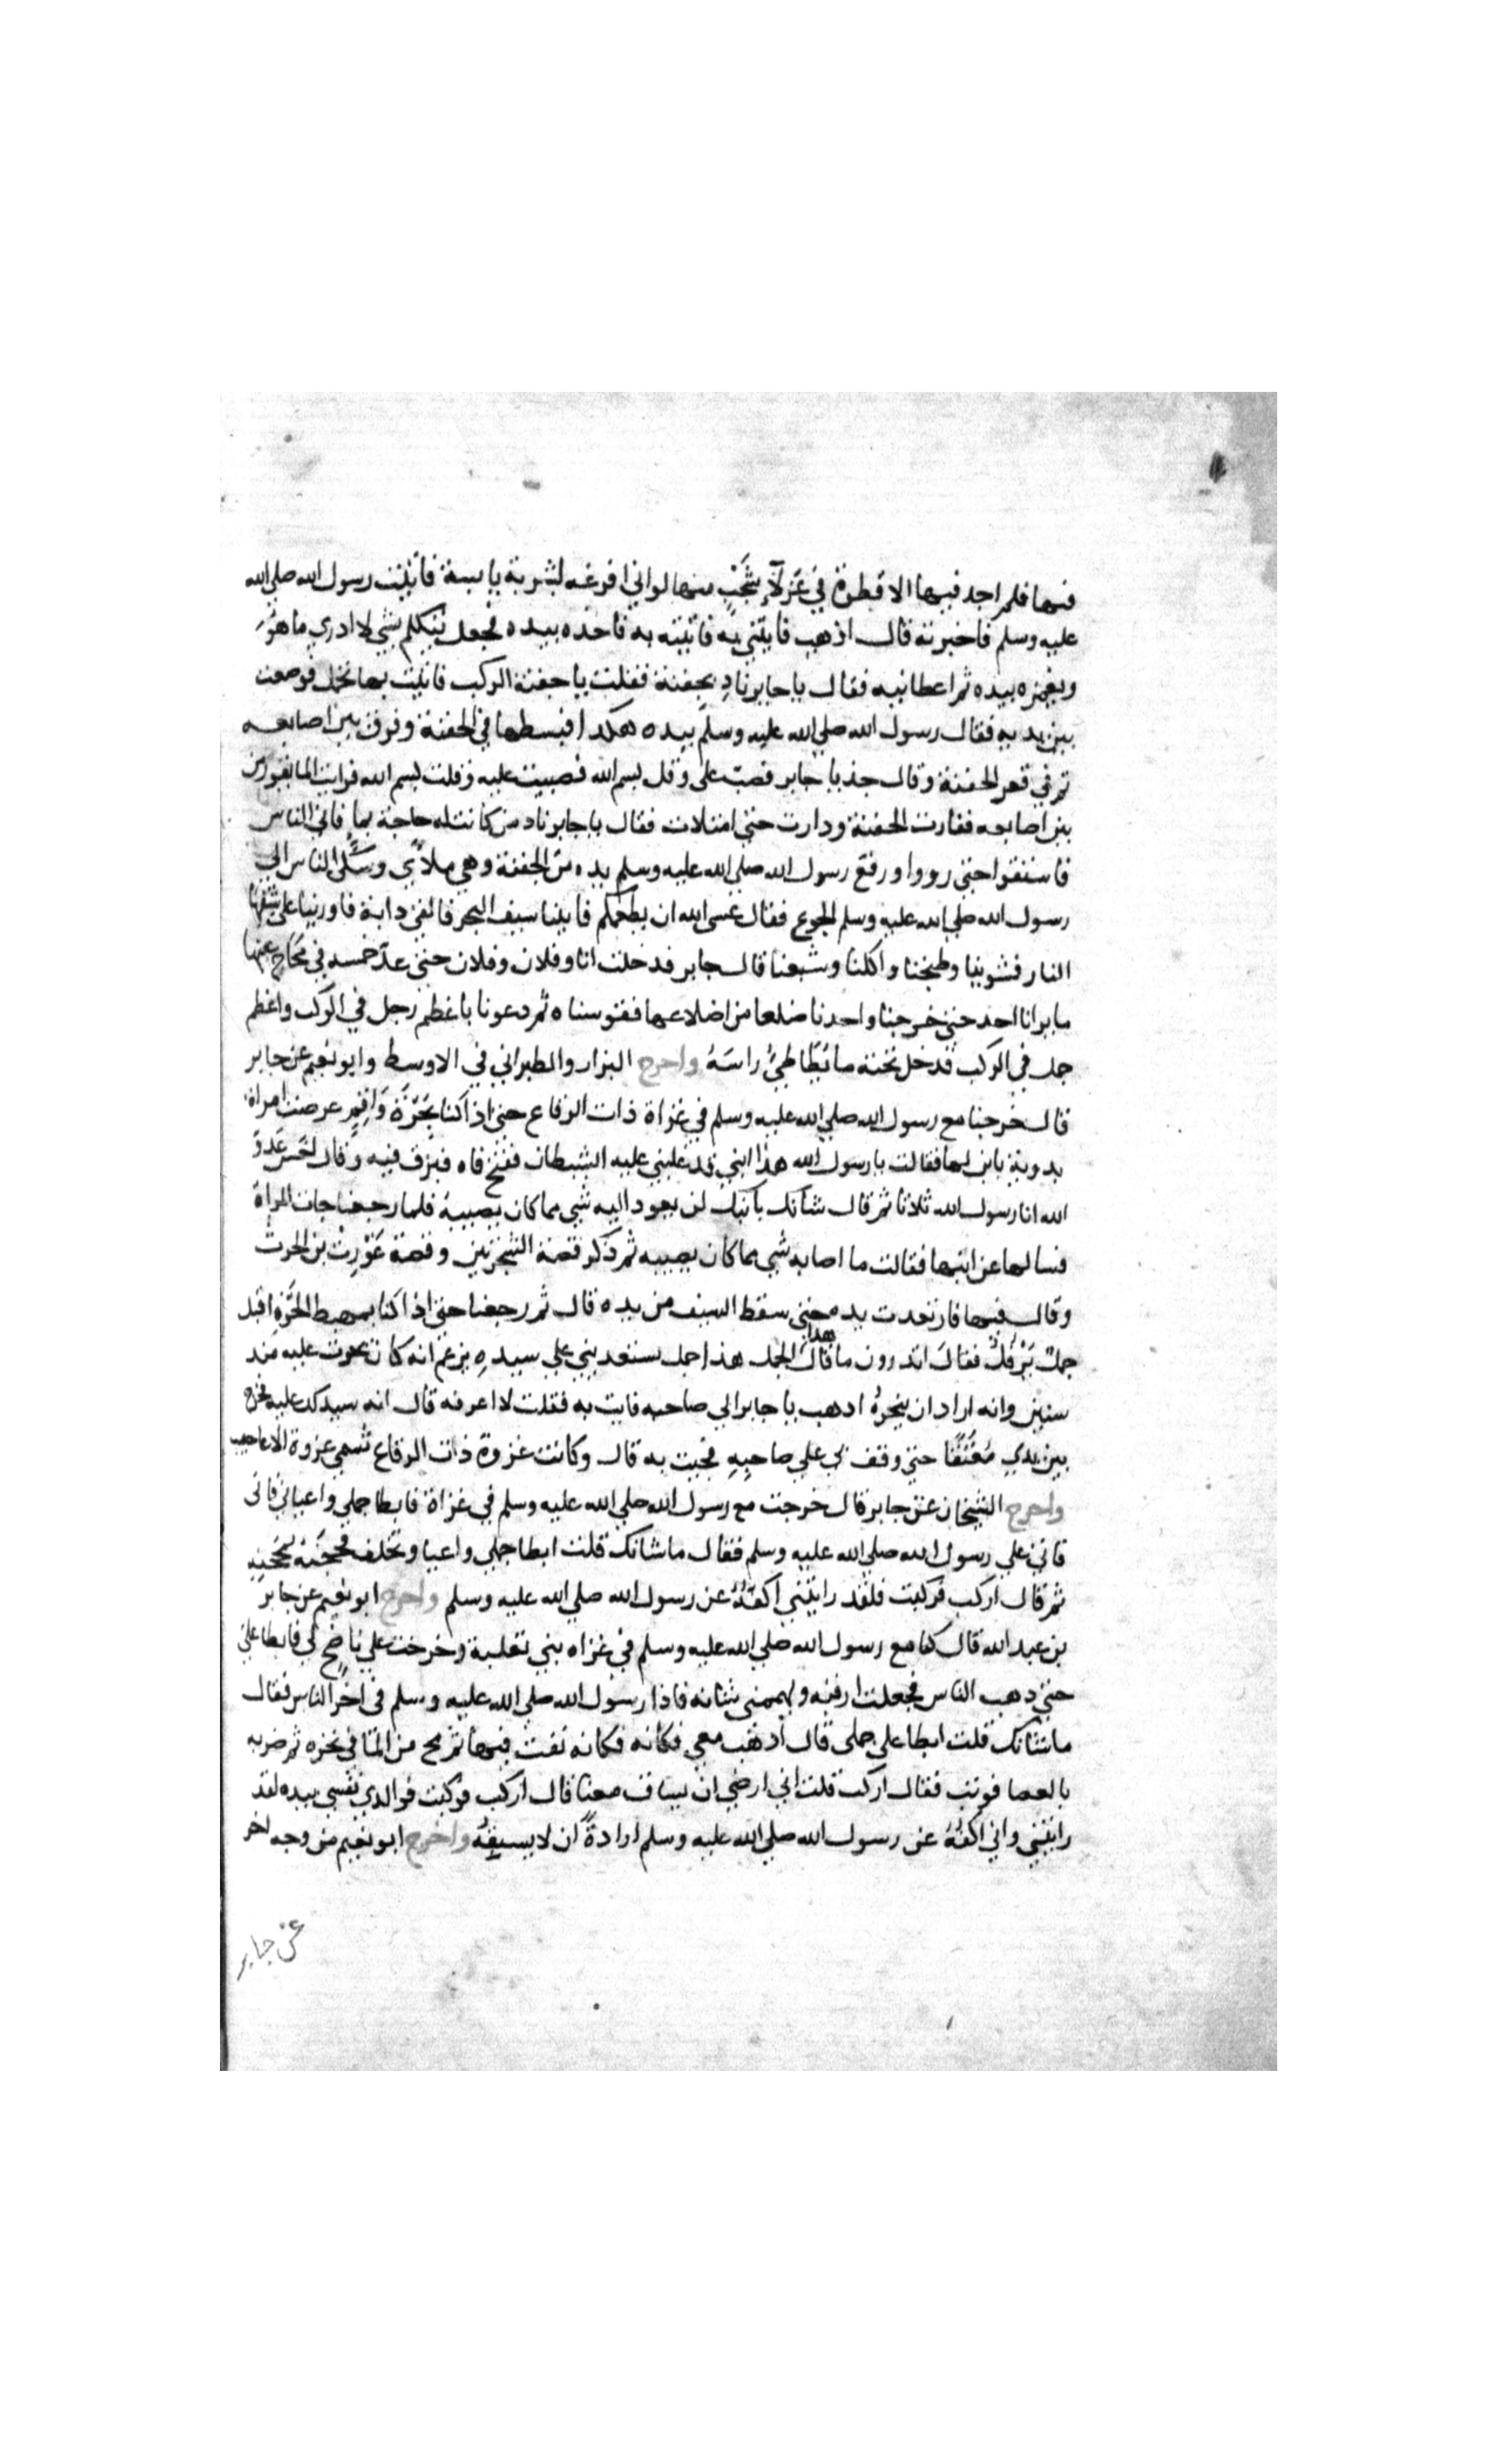 فيها فلم اجد فيها الا قطرة في عَزلاءِ شَجَبٍ منها لو اني افرغه لشربه يابسة فاتيت رسول الله صلي الله
عليه وسلم فاخبرته قال اذهب فايتني به فاتيته به فاخذه بيده فجعل يتكلم بشي لا ادري ما هو
ويغمزه بيده ثم اعطانيه فقال يا جابر نادِ بجفنة فقلت يا جفنة الركب فاتيت بها تحمل فوضعت
بين يديه فقال رسول الله صلي الله عليه وسلم بيده هكذا فبسطها في الجفنة وفرق بين اصابعه
ثم في قعر الجفنة وقال خذ يا جابر فصب علي وقل بسم الله فصببت عليه وقلت بسم الله فرايت الما يفور من
بين اصابعه ففارت الجفنة ودارت حتي امتلات فقال يا جابر ناد من كانت له حاجة بماٍ فاتي الناس
فاستقوا حتي رووا ورفع رسول الله صلي الله عليه وسلم يده من الجفنة وهي ملأي وشكي الناس الي
رسول الله صلي الله عليه وسلم الجوع فقال عسي الله ان يطعمكم فاتينا سيف البحر فالقي دابة فاورينا علي شقها
النار فشوينا وطبخنا واكلنا وشبعنا قال جابر فدخلت انا وفلان وفلان حتي عدّ خمسه في محَاج عينها
ما يرانا احد حتي خرجنا واخذنا ضلعا من اضلاعها فقوسناه ثم دعونا باعظم رجل في الركب واعظم
جمل في الركب فدخل تحته ما يُطَاطيُ راسَهُ واخرج البزار والطبراني في الاوسط وابو نعيم عن جابر
قال خرجنا مع رسول الله صلي الله عليه وسلم في غزاة ذات الرقاع حتي اذا كنا بحَرَّة وَاقِمٍ عرضت امراة
بدوية بابن لها فقالت يا رسول الله هذا ابني قد غلبني عليه الشيطان ففتح فاه فبزق فيه وقال اخس عدوّ
الله انا رسول الله ثلاثا ثم قال شانك بابنك لن يعود اليه شي مما كان يصيبه فلما رجعنا جات المراة
فسالها عن ابنها فقالت ما اصابه شي مما كان يصيبه ثم ذكر قصة الشجرتين وقصة غَوْرِث بن الحرث
وقال فيها فارتعدت يده حتي سقط السيف من يده قال ثم رجعنا حتي اذا كنا بمهبط الحَرَّةِ اقبل
جملٌ يَرْفُلُ فقال اتدرون ما قال هذا الجمل هذا جمل يستعديني علي سيدهِ يزعم انه كان يحرث عليه منذ
سنين وانه اراد ان ينحرهُ اذهب يا جابر الي صاحبه فايت به فقلت لا اعرفه قال انه سيدلك عليه فخرج
بين يدي مُعْنَقًا حتي وقف بي علي صاحِبِهِ فجيت به قال وكانت غزوة ذات الرقاع تُسمي غزوة الاعاجيب
واخرج الشيخان عن جابر قال خرجت مع رسول الله صلي الله عليه وسلم في غزاة فابطا جملي واعياني فاتي
فاتي علي رسول الله صلي الله عليه وسلم فقال ما شانك قلت ابطا جملي واعيا وتخلف فحجنه بمحجنه
ثم قال اركب فركبت فلقد رايتني اكفُّهُ عن رسول الله صلي الله عليه وسلم واخرج ابو نعيم عن جابر
بن عبد الله قال كنا مع رسول الله صلي الله عليه وسلم في غزاه بني ثعلبة وخرجت علي ناضح لي فابطا علي
حتي ذهب الناس فجعلت ارقبه ويهمني شانه فاذا رسول الله صلي الله عليه وسلم في اخر الناس فقال
ما شانك قلت ابطا علي جملي قال اذهب معي فكانه فكانه نفث فيها ثم مج من الما في نحره ثم ضربه
بالعصا فوثب فقال اركب قلت اني ارضي ان يساق معنا قال اركب فركبت فوالذي نفسي بيده لقد
رايتني واني اكفُّهُ عن رسول الله صلي الله عليه وسلم ارادةً ان لا يسبقهُ واخرج ابو نعيم من وجه اخر
عن جابر